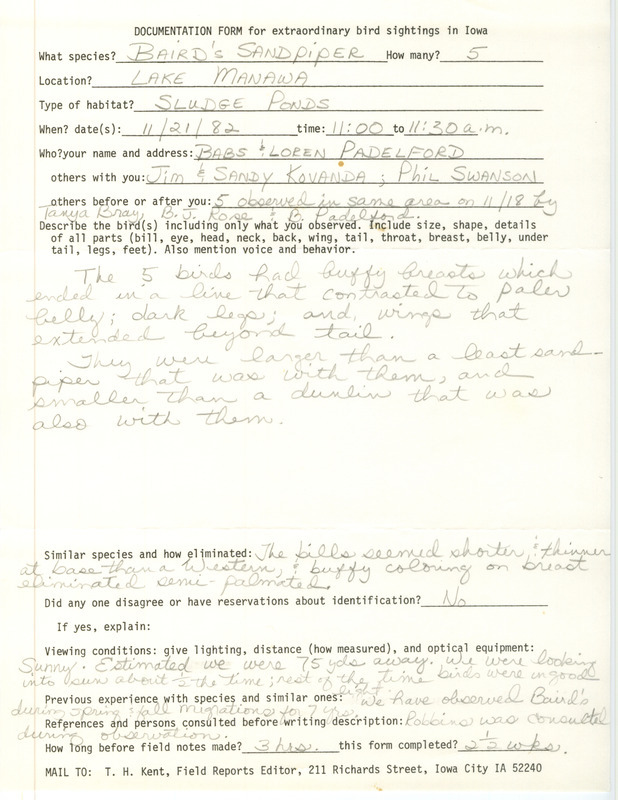 DOCUMENTATION FORM for extraordinary bird sightings in Iowa
What species? BAIRD'S SANDPIPER How many? 5
Location? LAKE MANAWA
Type of habitat? SLUDGE PONDS
When? date(s): 11/21/82 time: 11:00 to 11:30 a.m.
Who? your name and address: BABS & LOREN PADELFORD
others with you: Jim & SANDY KOVANDA; PHIL SWANSON
others before or after you: 5 observed in same area on 11/18 by
Tanya Bray, B.J. Rose & B. Padelford.
Describe the bird(s) including only what you observed. Include size, shape, details
of all parts (bill, eye, head, neck, back, wing, tail, throat, breast, belly, under
tail, legs, feet). Also mention voice and behavior.
The 5 birds had buffy breasts which
ended in a line that contrasted to paler
belly; dark legs; and, wings that
extended beyond tail.
They were larger than a least sand-
piper that was with them, and
smaller than a dunlin that was
also with them.
Similar species and how eliminated: The bills seemed shorter, & thinner
at base than a Western, & buffy coloring on breast
eliminated semi-palmated.
Did any one disagree or have reservations about identification? No
If yes, explain:
Viewing conditions: give lighting, distance (how measured), and optical equipment:
Sunny. Estimated we were 75 yds away. We were looking
into sun about 1/2 the time; rest of the time birds were in good
light.
Previous experience with species and similar ones: We have observed Baird's
during spring & fall migrations for 7 yrs.
References and persons consulted before writing description: Robbins was consulted
during observation.
How long before field notes made? 3 hrs. this form completed? 2 1/2 wks.
MAIL TO: T. H. Kent, Field Reports Editor, 211 Richards Street, Iowa City IA 52240